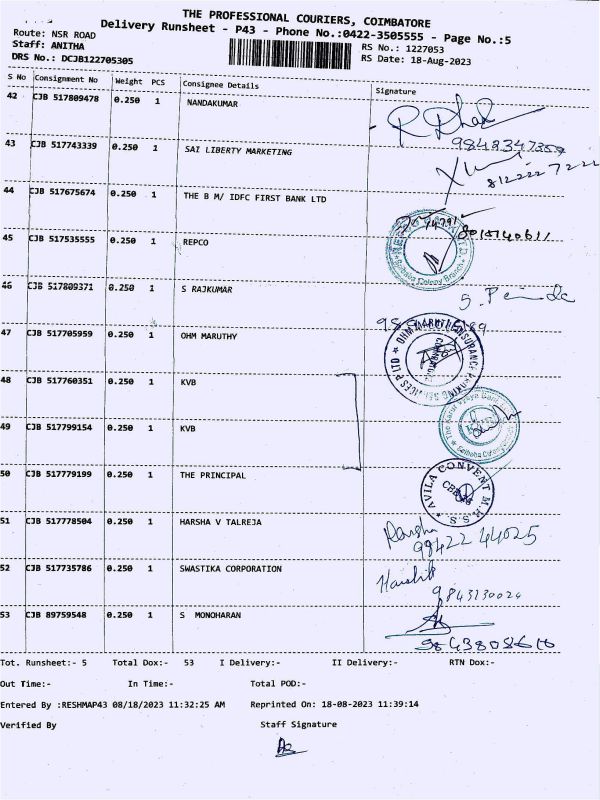 THE PROFESSIONAL COURIERS, COIMBATORE
Delivery Runsheet - P43 - Phone No.:0422-3505555 - Page No.:5
Route: NSR ROAD
RS No.: 1227053
Staff: ANITHA
RS Date: 18-Aug-2023
DRS No.: DCJB122705305
S No Consignment No Weight PCS Consignee Details Signature
42 CJB 517809478 0.250 1 NANDAKUMAR
43 CJB 517743339 0.250 1 SAI LIBERTY MARKETING
44 CJB 517675674 0.250 1 THE B M/ IDFC FIRST BANK LTD
45 CJB 517535555 0.250 1 REPCO
46 CJB 517809371 0.250 1 S RAJKUMAR
47 CJB 517705959 0.250 1 OHM MARUTHY
48 CJB 517760351 0.250 1 KVB
49 CJB 517799154 0.250 1 KVB
50 CJB 517779199 0.250 1 THE PRINCIPAL
AVILA CONVENT M.H.S.S.
51 CJB 517778504 0.250 1 HARSHA V TALREJA
99422 44025
52 CJB 517735786 0.250 1 SWASTIKA CORPORATION
53 CJB 89759548 0.250 1 S MONOHARAN
Tot. Runsheet:- 5 Total Dox:- 53 I Delivery:- II Delivery:- RTN Dox:-
Out Time:- In Time:- Total POD:-
Entered By :RESHMAP43 08/18/2023 11:32:25 AM Reprinted On: 18-08-2023 11:39:14
Verified By Staff Signature